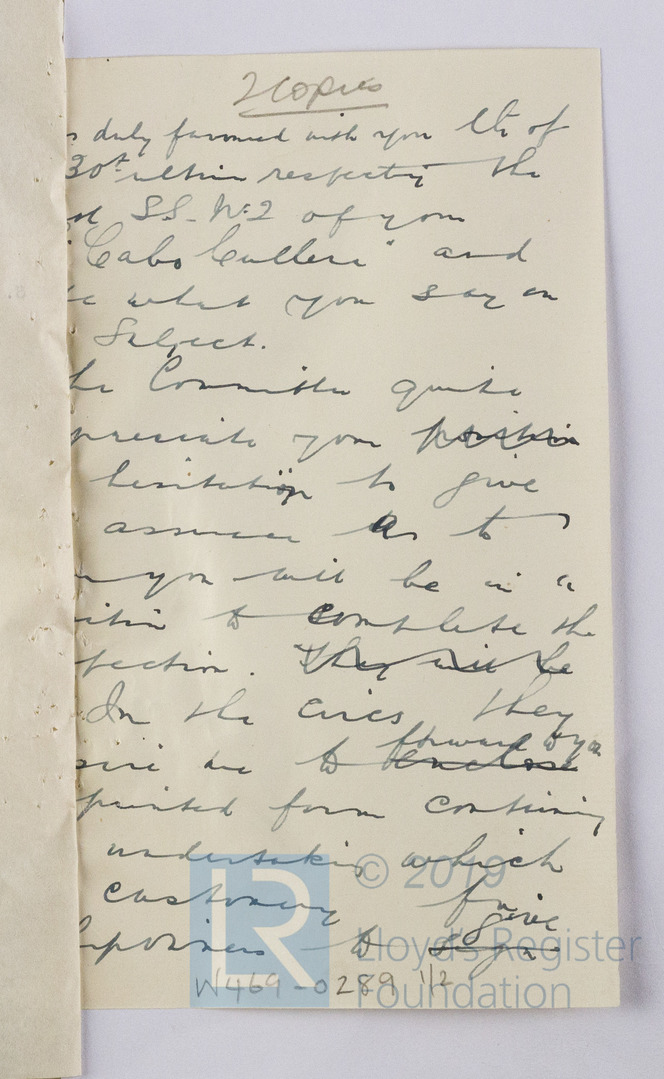 2 Copies
s duly favoured with your Ltr of
30th ultimo respecting the
SS. No 2 of your
"Cabo Cullera" and
what you say on
Subject.
he Committee quite
preciate your position
hesitation to give
assurance as to
n you will be in a
sition to complete the
spection. They will be
In the circs they
forward to you
sire me to enclose
printed form containing
undertaking which
customary for
give
Shipowners to sign
© 2019
LR
Lloyd's Register
Foundation
W469-0289 1/2